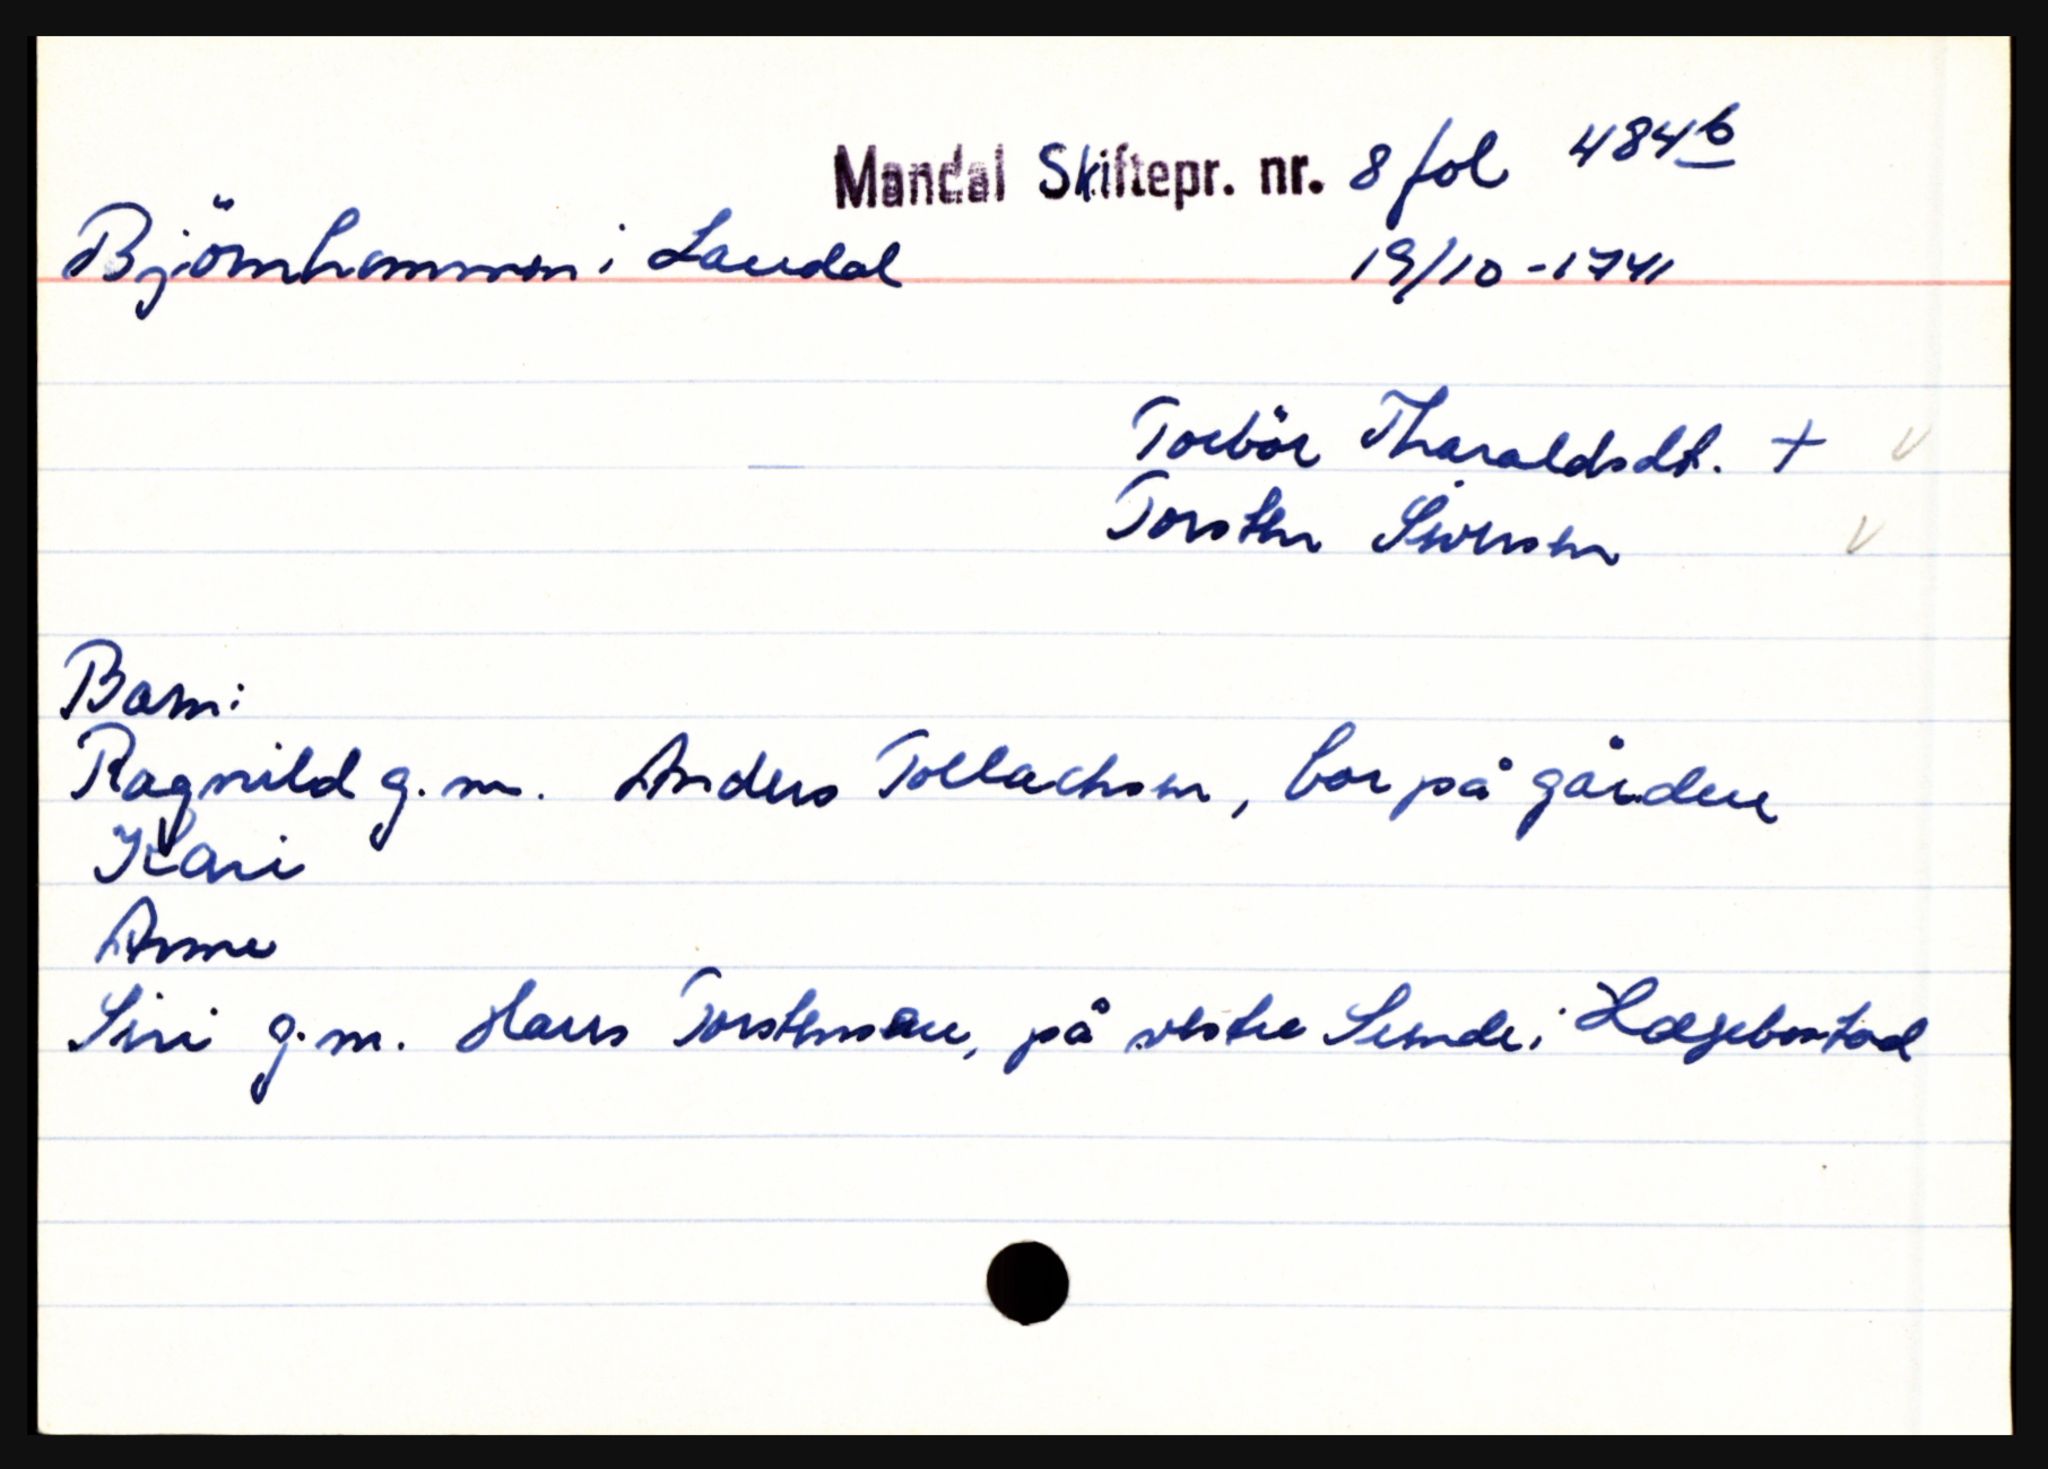 Mandal Skiftepr. nr. 8 fol 484b
Björnhammen i Laudal 19/10-1741
Torbör Tharaldsdt. +
Torsten Siversen
Barn:
Ragnild g.m. Anders Tollachsen, bor på gården
Kari
Anne
Siri g.m. Hans Torstensen, på vestre Seude i Hægebostad